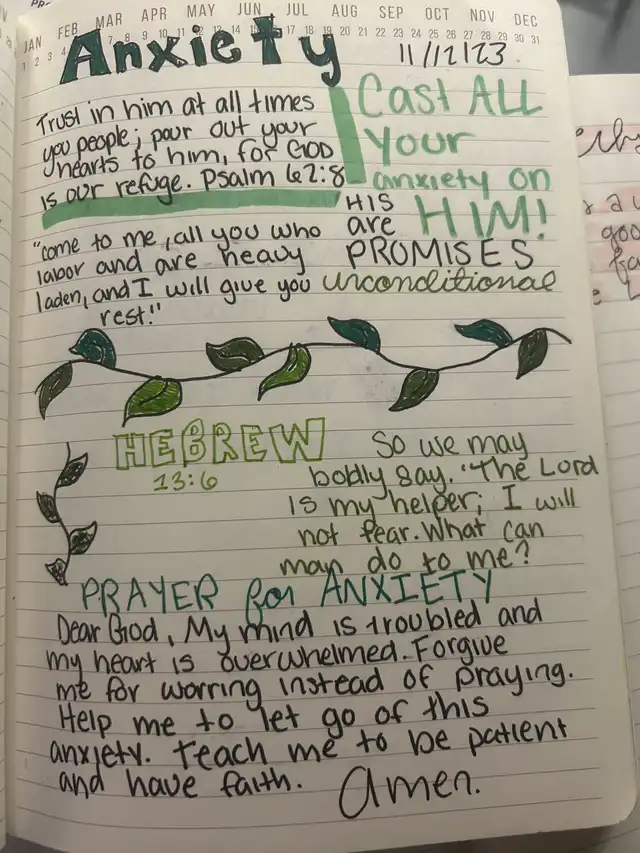 JAN FEB MAR APR MAY JUN JUL AUG SEP OCT NOV DEC
1 2 3 4 7 8 9 10 11 12 13 14 15 16 17 18 19 20 21 22 23 24 25 26 27 28 29 30 31
Anxiety
11/12/23
Trust in him at all times
you people; pour out your
hearts to him, for GOD
is our refuge. Psalm 62:8
Cast ALL
Your
anxiety on
HIM!
"come to me, all you who
labor and are heavy
laden, and I will give you
rest!"
HIS
are
PROMISES
unconditional
HEBREW
13:6
So we may
boldly say. "The Lord
is my helper; I will
not fear. What can
man do to me?
PRAYER for ANXIETY
Dear God, My mind is troubled and
my heart is overwhelmed. Forgive
me for worring instead of praying.
Help me to let go of this
anxiety. Teach me to be patient
and have faith. Amen.